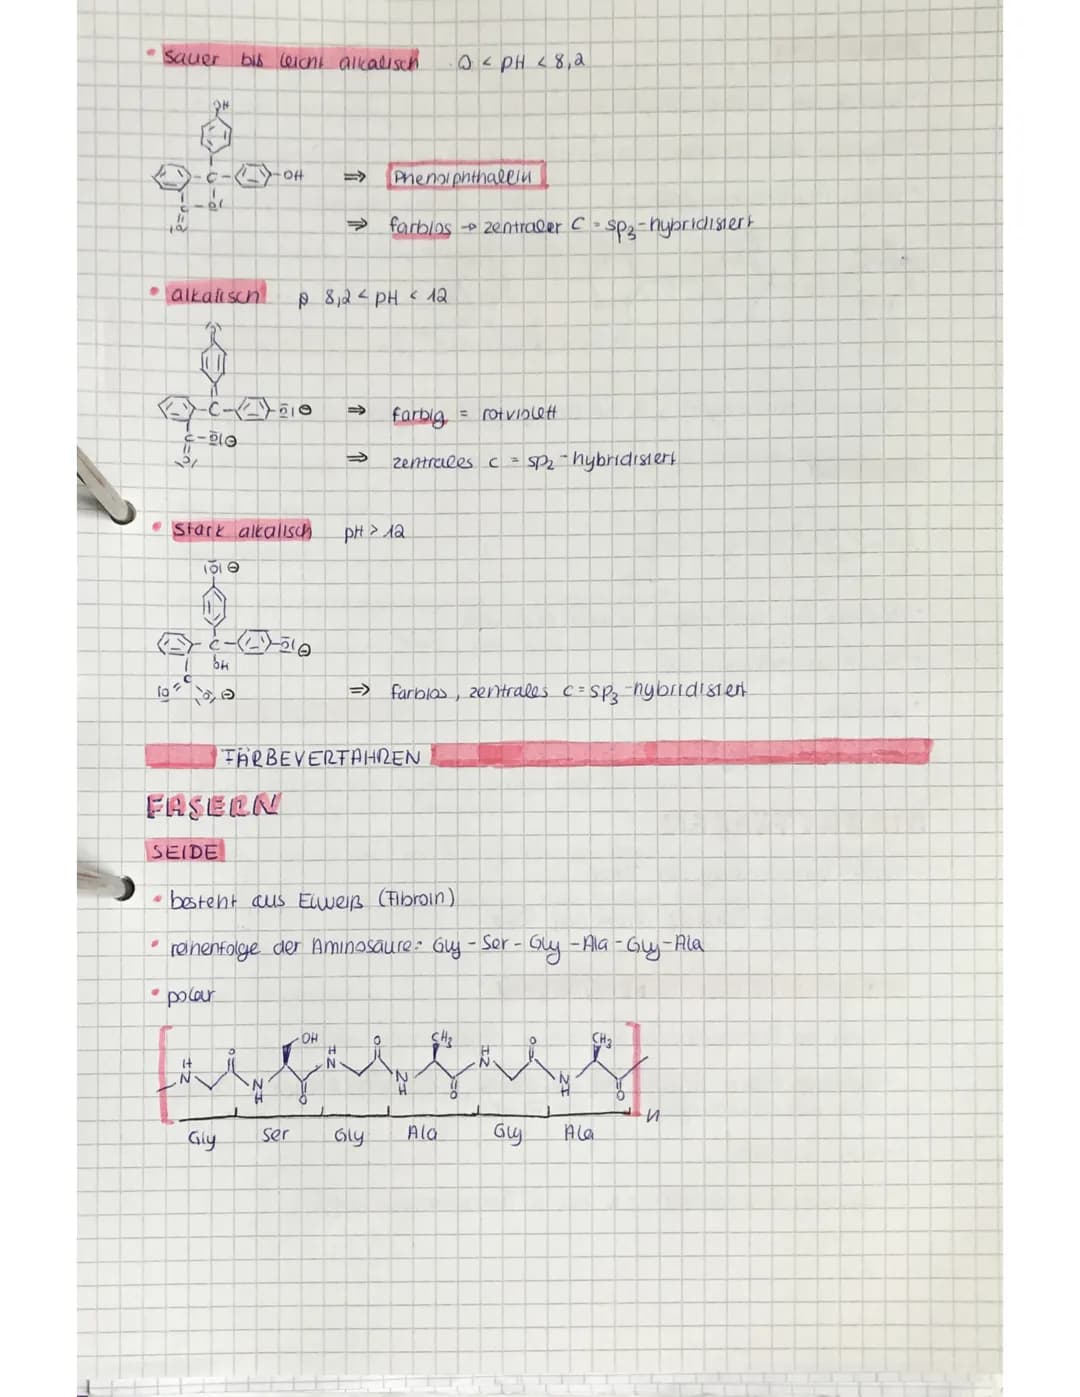 • sauer bis leicht alkalisch 0 < pH < 8,2
OH
C
OH
C
⇒ Phenolphthalein
⇒ farblos → zentraler C = sp3-hybridisiert
• alkalisch 8,2 < pH < 12
C
⇒ farbig = rotviolett
C
⇒ zentrales C = sp2-hybridisiert
• stark alkalisch pH > 12
C
OH
C
⇒ farblos, zentrales C = sp3-hybridisiert
FÄRBEVERFAHREN
FASERN
SEIDE
• besteht aus Eiweiß (Fibroin)
• reihenfolge der Aminosäure: Gly - Ser - Gly - Ala - Gly - Ala
• polar
OH CH3 CH3
H N O N H O H N O N H O H N O N H O n
Gly Ser Gly Ala Gly Ala